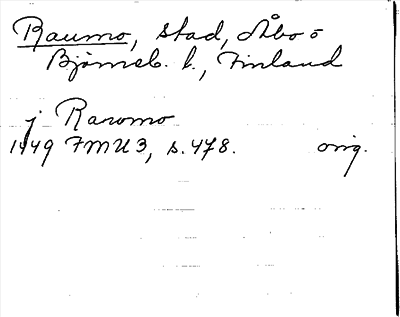 Raumo, stad, Åbo o
Björneb. l., Finland
j Raromo
1449 FMU 3, s. 478. orig.